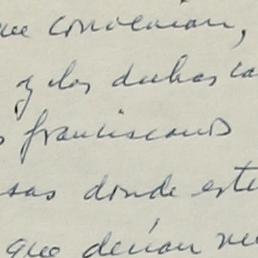 que convenían,
y los dichos ca
s franciscanos
sas donde este
que decían